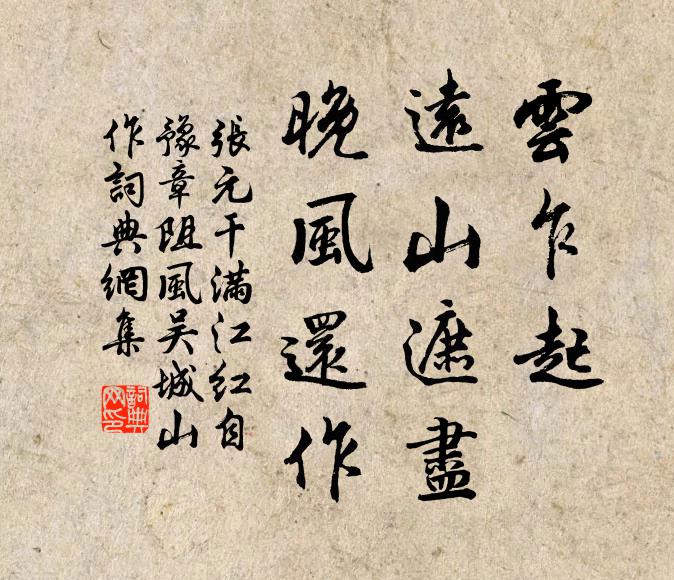 雲乍起
遠山遮盡
晚風還作
張元干滿江红自
豫章阻風吴城山
作詞典網集
詞典
网印